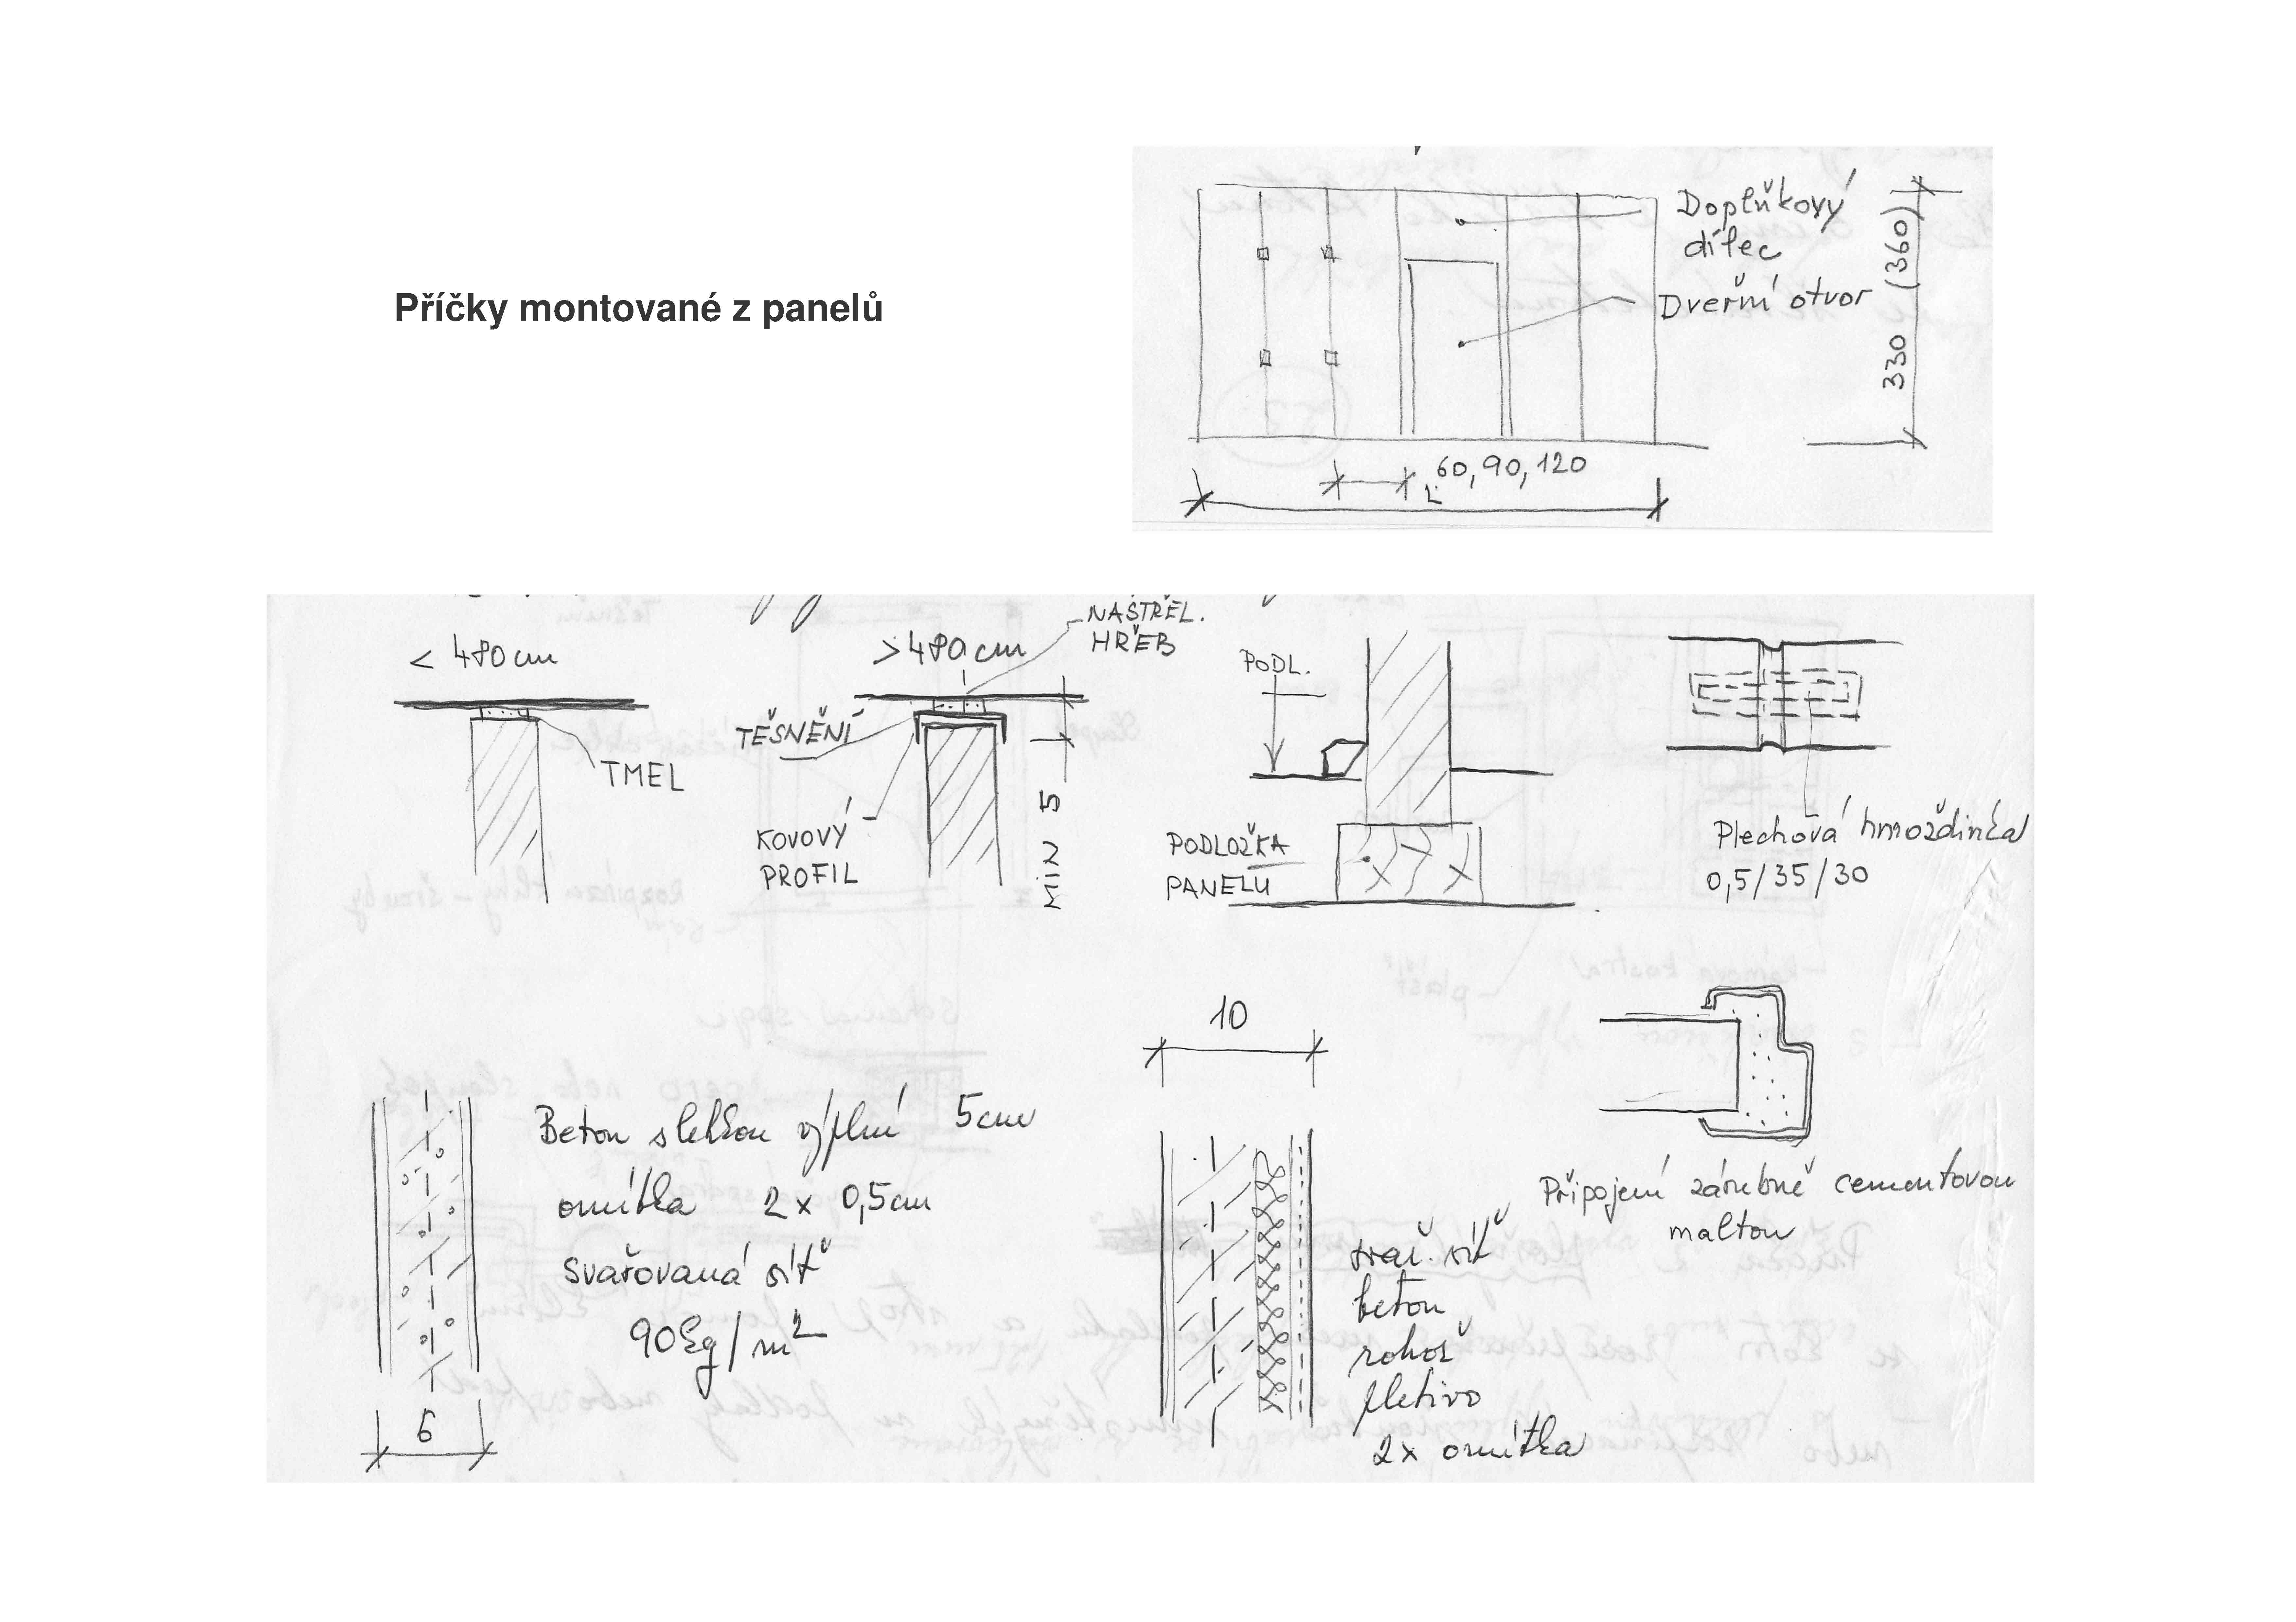 Příčky montované z panelů
Doplňkový
dílec
Dveřní otvor
330 (360)
60, 90, 120
L
< 480 cm
TMEL
> 480 cm
NASTŘEL.
HŘEB
TĚSNĚNÍ
KOVOVÝ
PROFIL
MIN 5
PODL.
PODLOŽKA
PANELU
Plechová hmoždinka
0,5/35/30
Beton s lehkou výplní 5cm
omítka 2x 0,5cm
Svařovaná síť
90kg/m2
6
10
svař. síť
beton
rohož
pletivo
2x omítka
Připojení zárubně cementovou
maltou